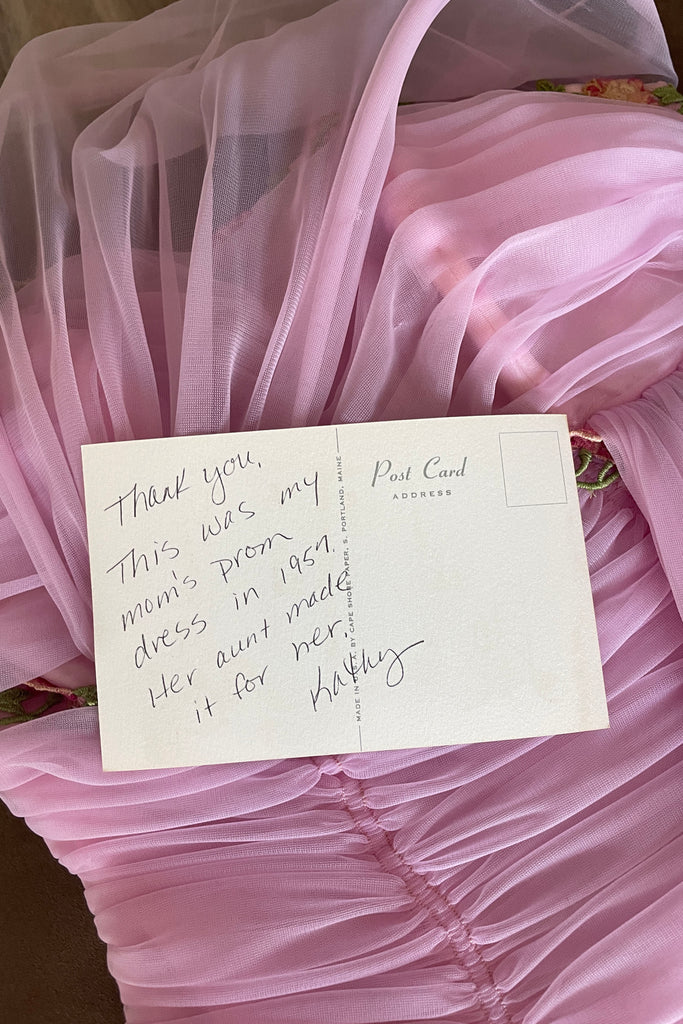 Thank you,
This was my
mom's prom
dress in 1957.
Her aunt made
it for her.
Kathy
Post Card
ADDRESS
MADE IN U.S.A. BY CAPE SHORE PAPER, S. PORTLAND, MAINE